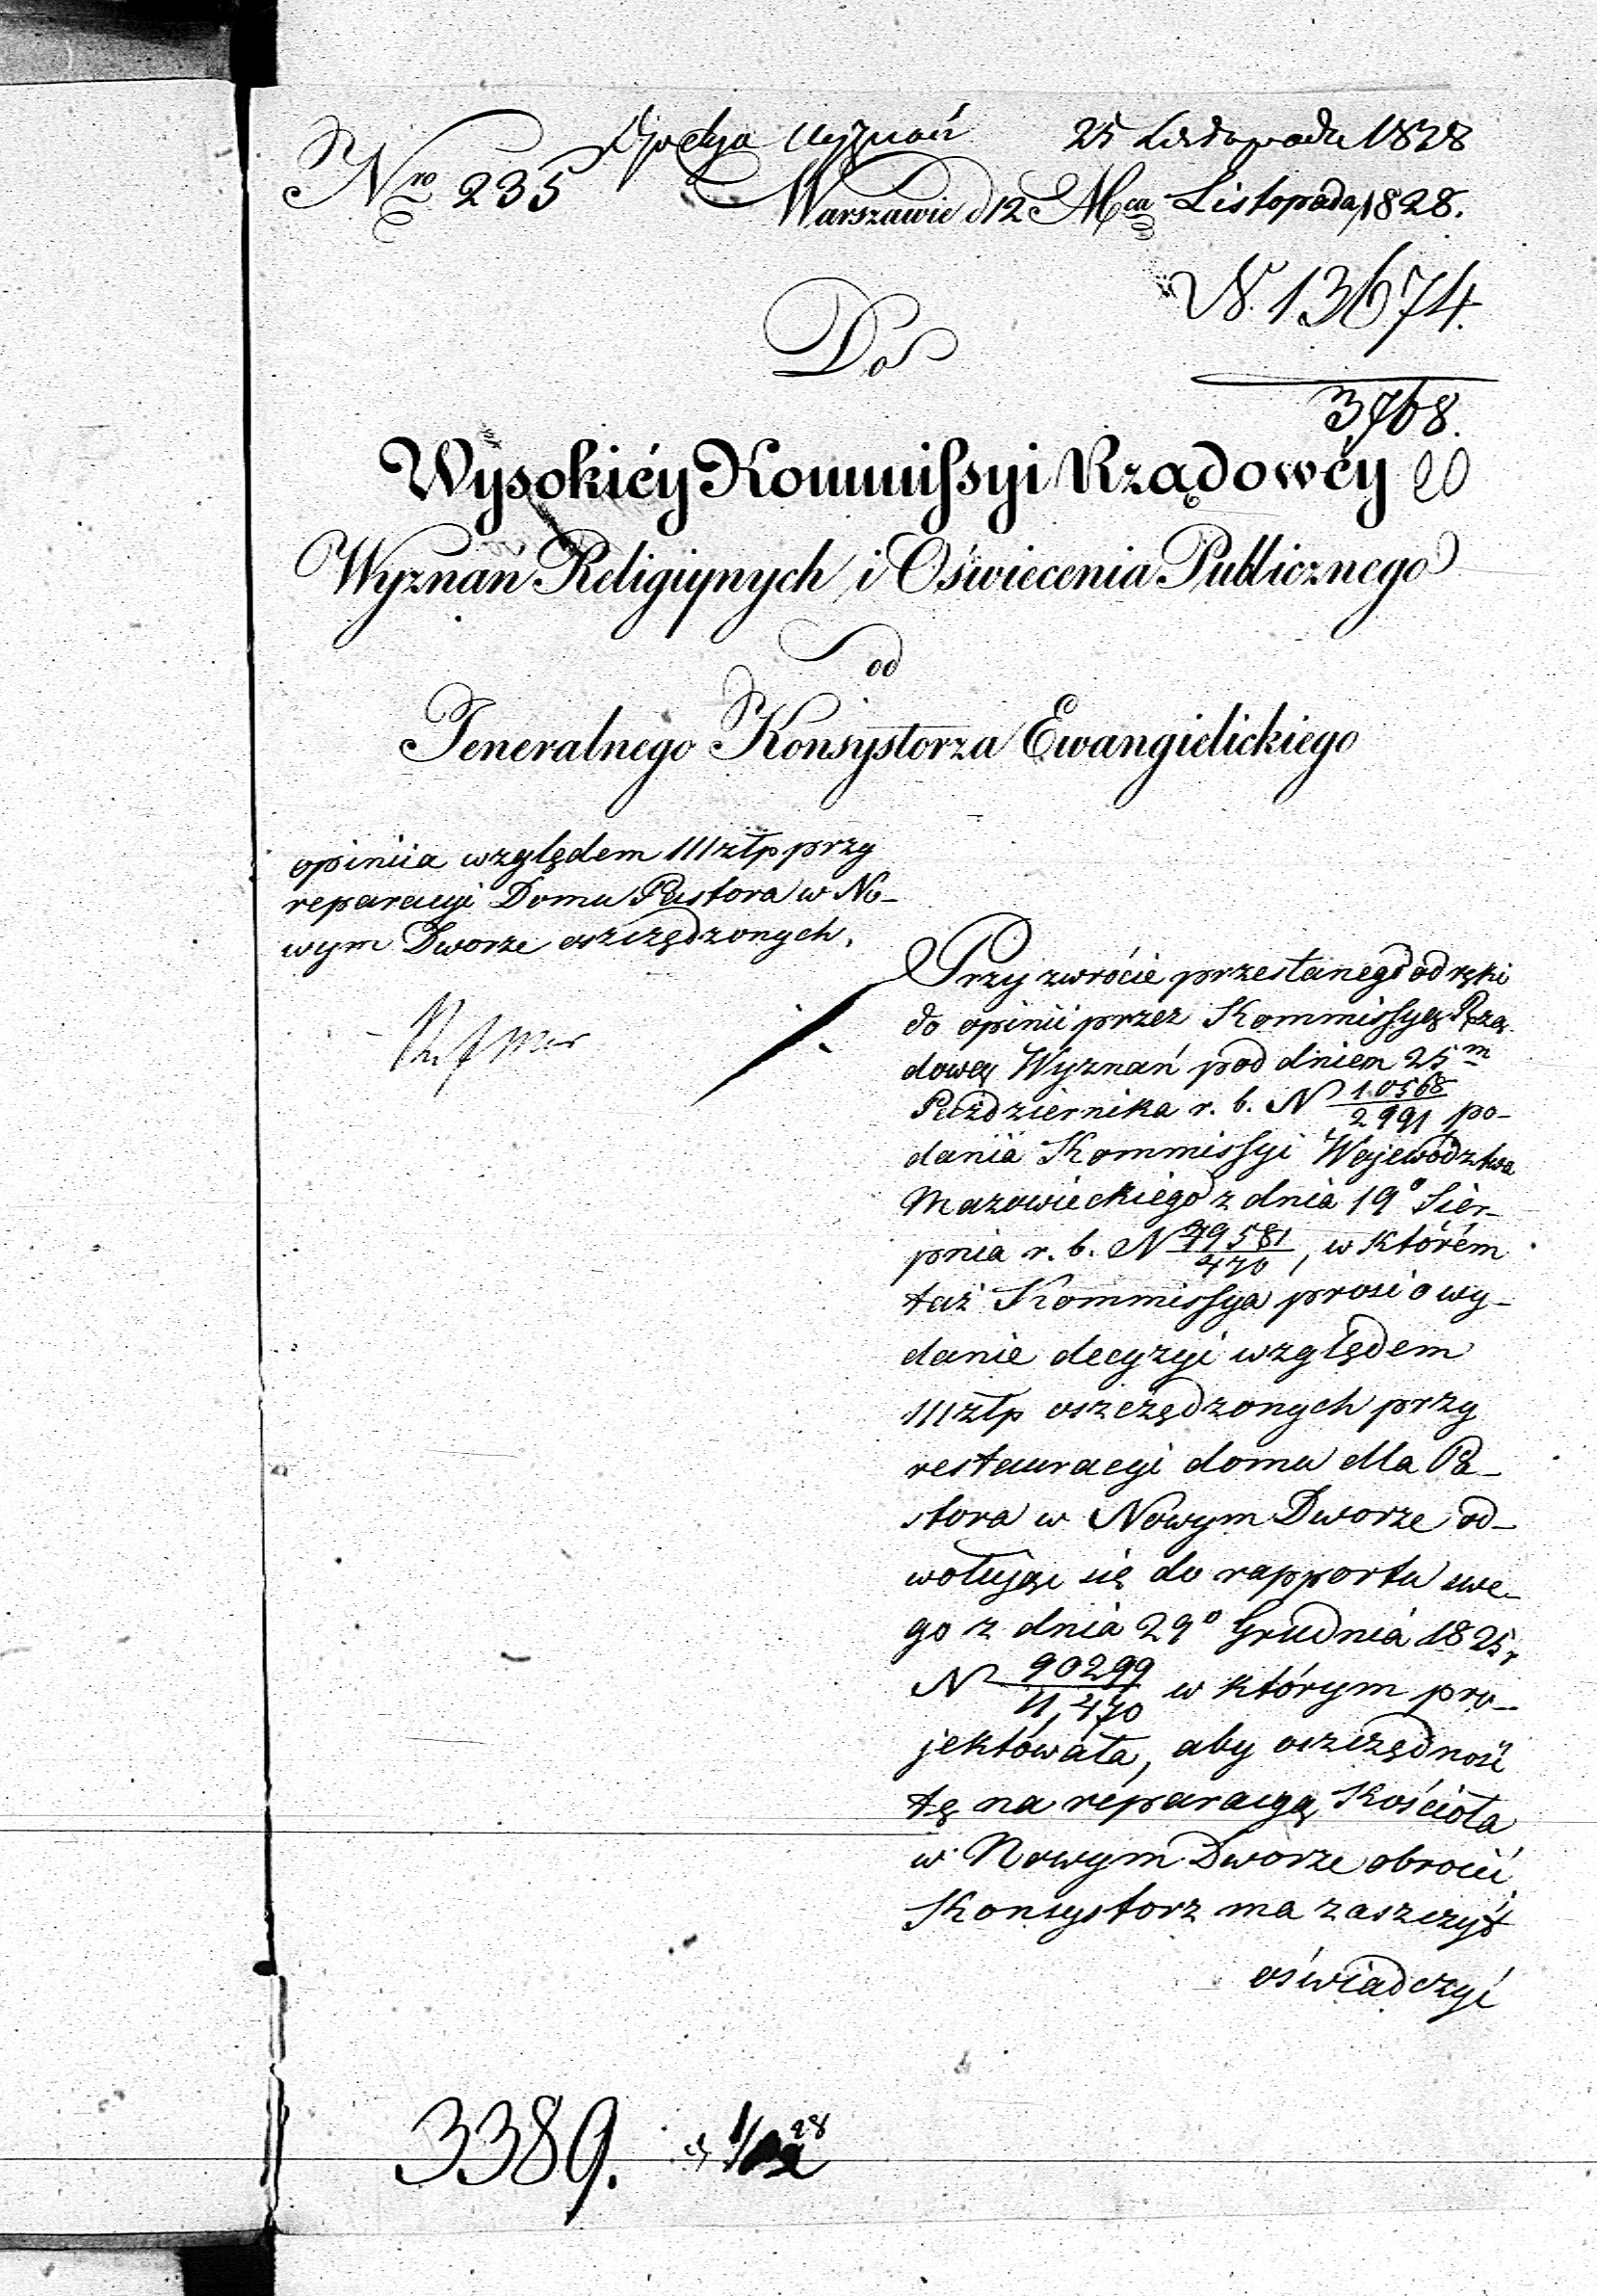 Wyznań 25 Listopada 1828
Nro 235 Warszawie d 12 Mca Listopada 1828.
N. 13674.
3768.
Do
Wysokiéy Kommissyi Rządowéy 20
Wyznań Religiynych i Oświecenia Publicznego
od
Jeneralnego Konsystorza Ewangielickiego
opiniia względem 111 złp przy
reparacyi Domu Pastora w No-
wym Dworze oszczędzonych.
Przy zwrócie przesłanego od ręki
do opinii przez Kommissyę Rzą-
dową Wyznań pod dniem 25m
Października r. b. N 10568/2991 po-
dania Kommissyi Wojewodztwa
Mazowieckiego z dnia 19o Sier-
pnia r. b. N 49581/470, w którém
taż Kommissya prosi o wy-
danie decyzyi względem
111 złp oszczędzonych przy
restauracyi domu dla Pa-
stora w Nowym Dworze od-
wołując się do rapportu swe-
go z dnia 29o Grudnia 1825 r
N 90299/11,470 w którym pro-
jektowała, aby oszczędność
tę na reparacyą Kościoła
w Nowym Dworze obrócić,
Konsystorz ma zaszczyt
oświadczyć
3389.